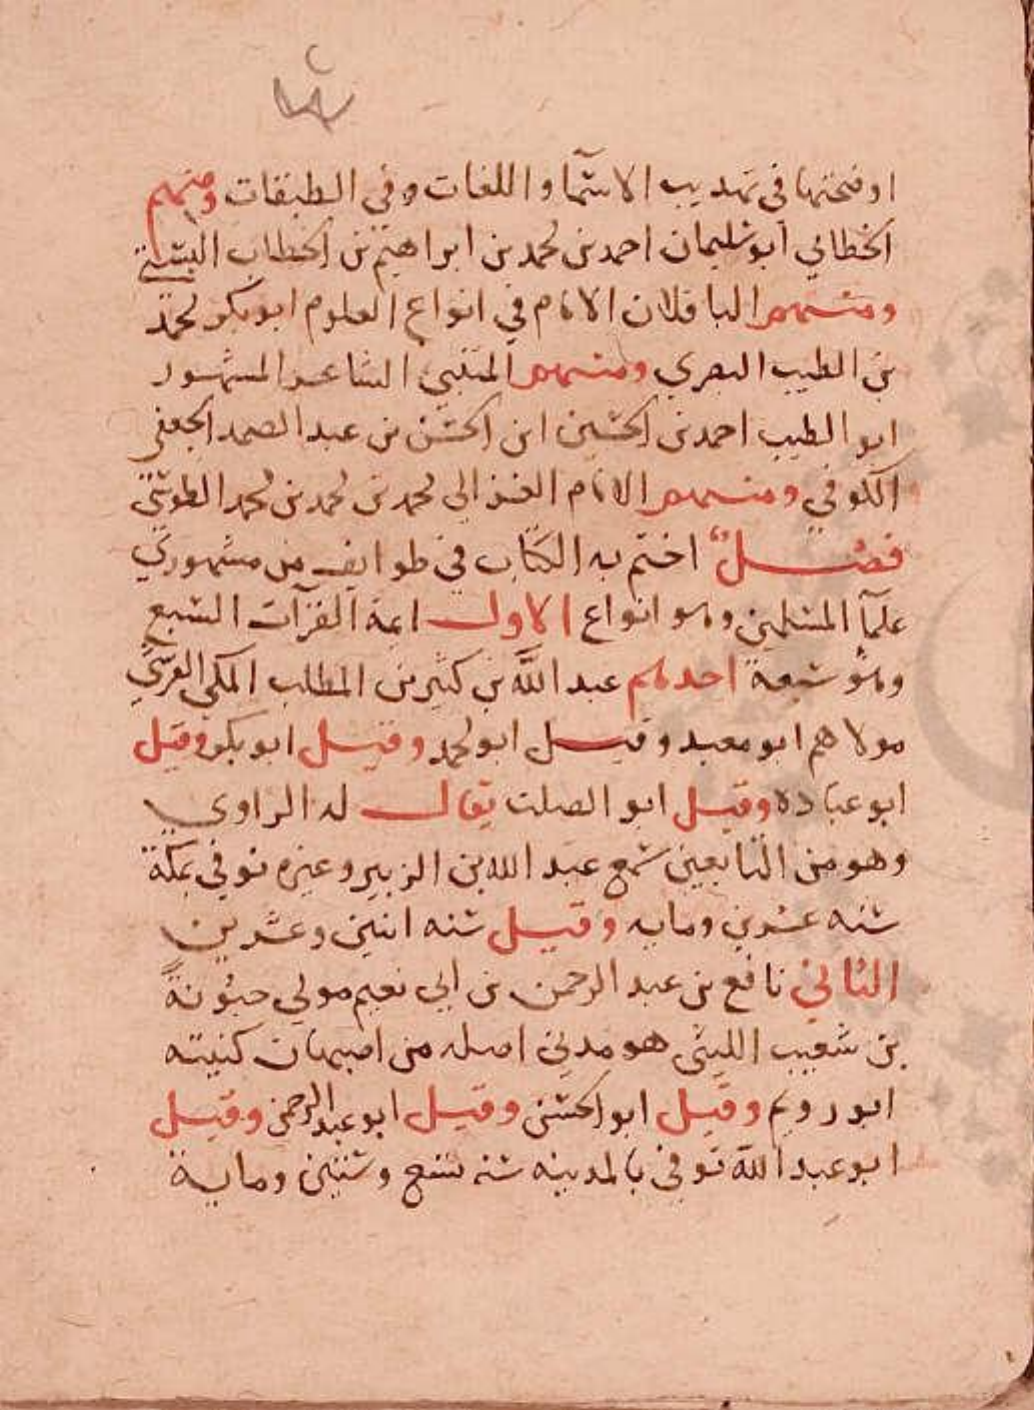 اوضحتها في تهذيب الاسما واللغات وفي الطبقات ومنهم
الخطابي ابو سليمان احمد بن محمد بن ابراهيم بن الخطاب البستي
ومنهم الباقلان الامام في انواع العلوم ابو بكر محمد
بن الطيب البصري ومنهم المتنبي الشاعر المشهور
ابو الطيب احمد بن الحسين ابن الحسن بن عبد الصمد الجعفي
الكوفي ومنهم الامام الغزالي محمد بن محمد بن محمد الطوسي
فصل اختم به الكتاب في طوايف من مشهوري
علمآ المسلمين وهو انواع الاول ايمة القرآت السبع
وهو سبعة احدهم عبد الله بن كثير بن المطلب المكي القرشي
مولاهم ابو معبد وقيل ابو محمد وقيل ابو بكر وقيل
ابو عباده وقيل ابو الصلت يقال له الراوي
وهو من التابعين سمع عبد الله بن الزبير وغيره توفي بمكة
سنه عشرين ومايه وقيل سنه اثنين وعشرين
الثاني نافع بن عبد الرحمن بن ابي نعيم مولي جعونة
بن شعيب الليثي هو مدني اصله من اصبهان كنيته
ابو رويم وقيل ابو الحسن وقيل ابو عبد الرحمن وقيل
ابو عبد الله توفي بالمدينه سنه تسع وستين وماية